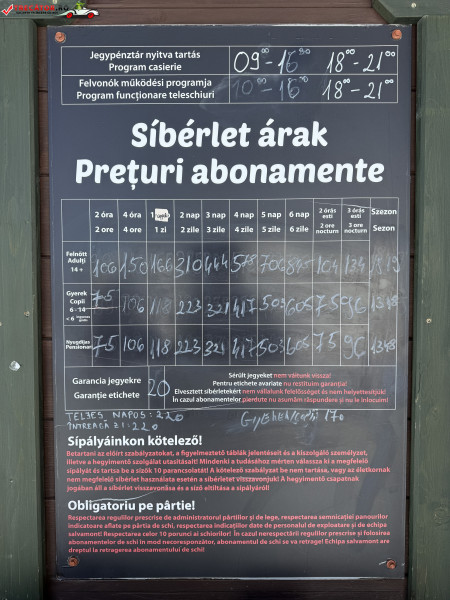 Jegypénztár nyitva tartás
Program casierie
09⁰⁰-16³⁰ 18⁰⁰-21⁰⁰
Felvonók működési programja
Program funcționare teleschiuri
10⁰⁰-16³⁰ 18⁰⁰-21⁰⁰
Síbérlet árak
Prețuri abonamente
2 óra 4 óra 1 2 nap 3 nap 4 nap 5 nap 6 nap 2 órás esti 3 órás esti Szezon
2 ore 4 ore 1 zi 2 zile 3 zile 4 zile 5 zile 6 zile 2 ore nocturn 3 ore nocturn Sezon
Felnőtt
Adulți
14 +
106 150 166 310 444 578 706 845 104 134 1819
Gyerek
Copii
6 - 14
< 6
75 106 118 223 321 417 503 605 75 96 1348
Nyugdíjas
Pensionar
75 106 118 223 321 417 503 605 75 96 1348
Garancia jegyekre
Garanție etichete
20
Sérült jegyeket nem váltunk vissza!
Pentru etichete avariate nu restituim garanția!
Elvesztett síbérletekért nem vállalunk felelősséget és nem helyettesítjük!
În cazul abonamentelor pierdute nu asumăm răspundere și nu le înlocuim!
TELJES NAPOS: 220
ÎNTREAGA ZI: 220
170
Sípályáinkon kötelező!
Betartani az előírt szabályzatokat, a figyelmeztető táblák jelentéseit és a kiszolgáló személyzet,
illetve a hegyimentő szolgálat utasításait! Mindenki a tudásához mérten válassza ki a megfelelő
sípályát és tartsa be a sízők 10 parancsolatát! A kötelező szabályzat be nem tartása, vagy az életkornak
nem megfelelő síbérlet használata esetén a síbérletet visszavonjuk! A hegyimentő csapatnak
jogában áll a síbérlet visszavonása és a síző eltiltása a sípályáról!
Obligatoriu pe pârtie!
Respectarea regulilor prescrise de administratorul pârtiilor și de lege, respectarea semnicației panourilor
indicatoare aflate pe pârtia de schi, respectarea indicațiilor date de personalul de exploatare și de echipa
salvamont! Respectarea celor 10 porunci ai schiorilor! În cazul nerespectării regulilor prescrise și folosirea
abonamentelor de schi in mod necoresponzător, abonamentul de schi se va retrage! Echipa salvamont are
dreptul la retragerea abonamentului de schi!